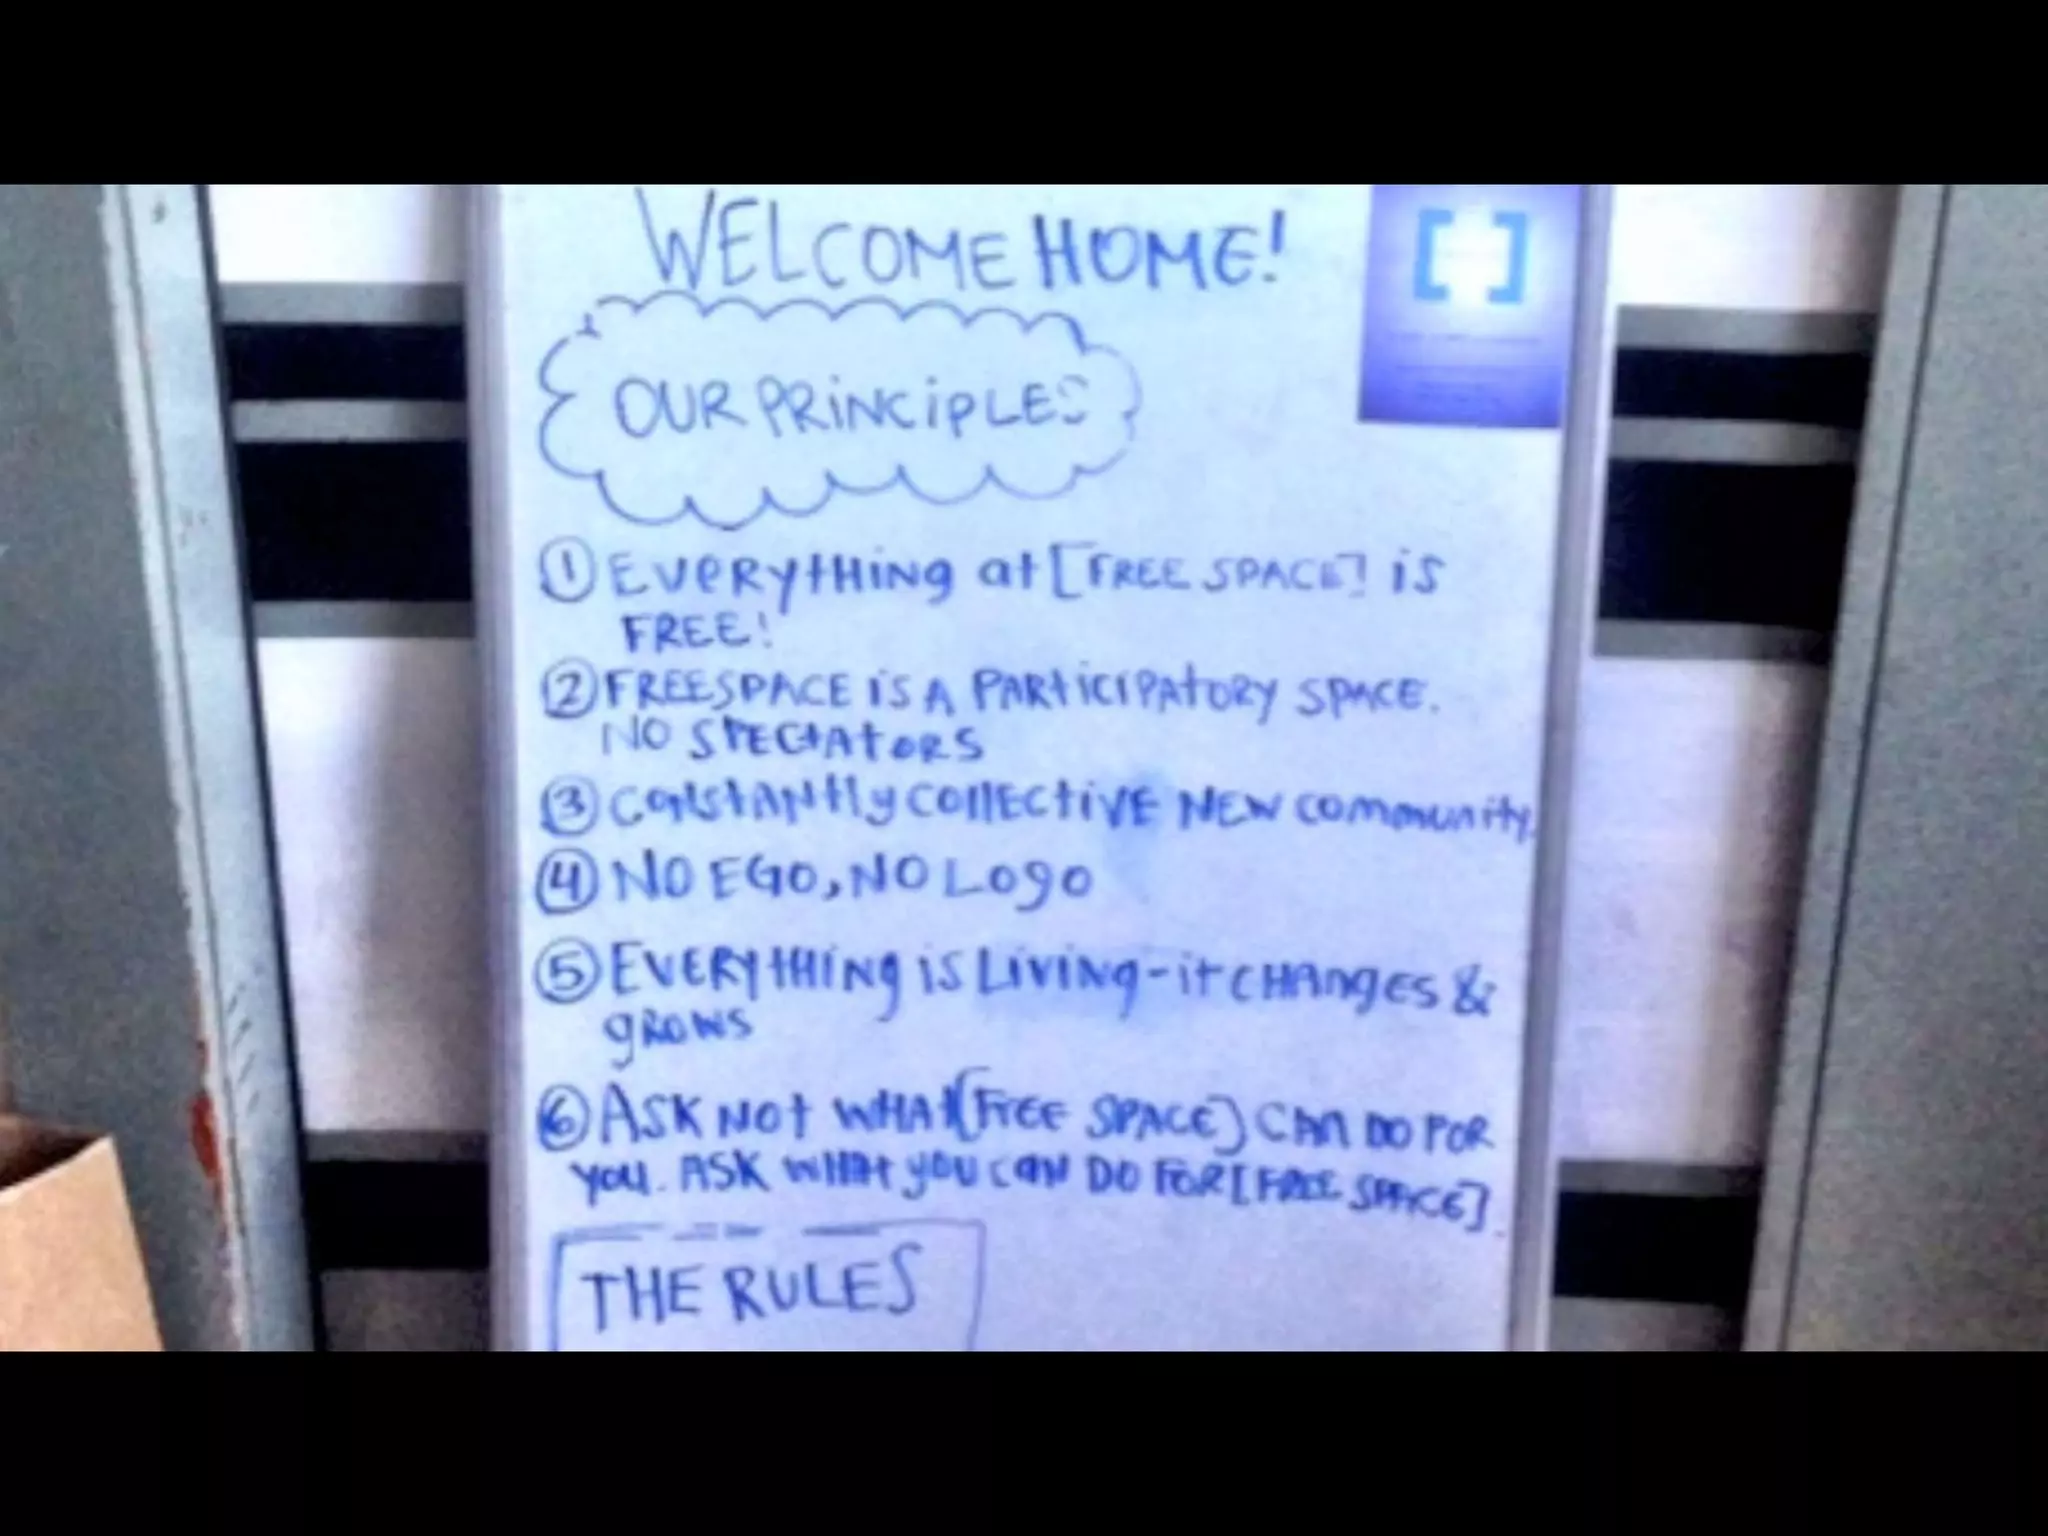 WELCOME HOME!
OUR PRINCIPLES
① EVERYTHING at [FREE SPACE] is
FREE!
② FREESPACE is A PARTICIPATORY SPACE.
NO SPECTATORS
③ CONSTANTLY COLLECTIVE NEW COMMUNITY.
④ NO EGO, NO LOGO
⑤ EVERYTHING is LIVING - it CHANGES &
GROWS
⑥ ASK NOT WHAT [FREE SPACE] CAN DO FOR
YOU. ASK WHAT YOU CAN DO FOR [FREE SPACE].
THE RULES